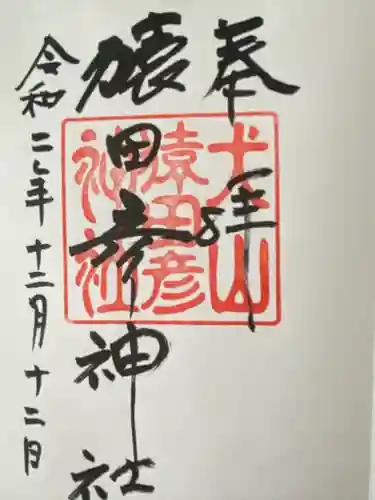 奉拝
猿田彦神社
令和二年十二月十二日
犬山
猿田彦
神社